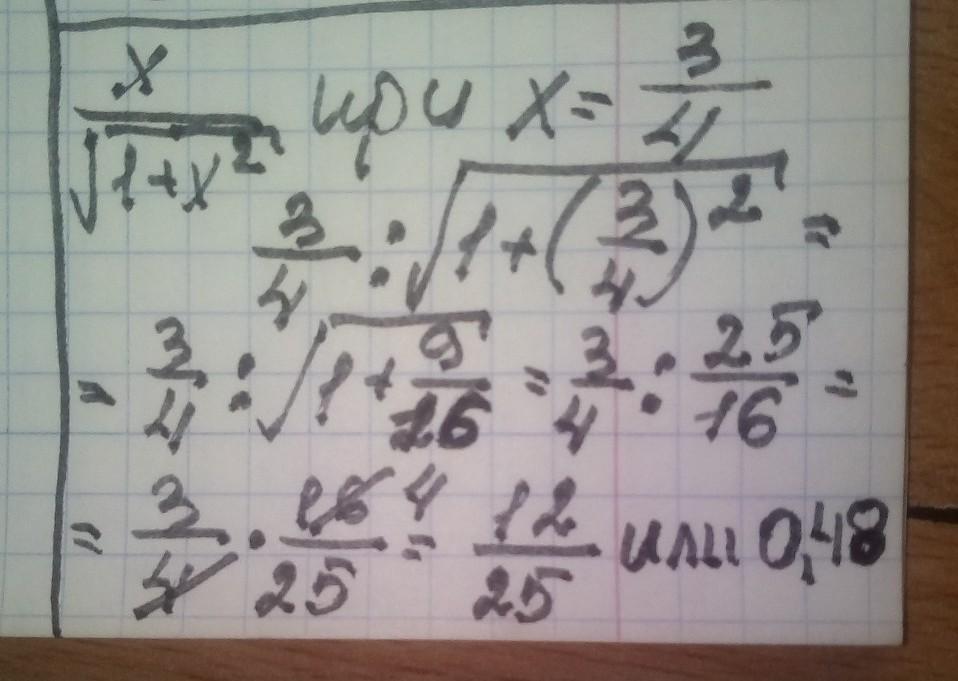 x/√(1+x²) при x = 3/4
3/4 : √(1+(3/4)²) =
= 3/4 : √(1+9/16) = 3/4 : 25/16 =
= 3/4 · 16/25 4 = 12/25 или 0,48